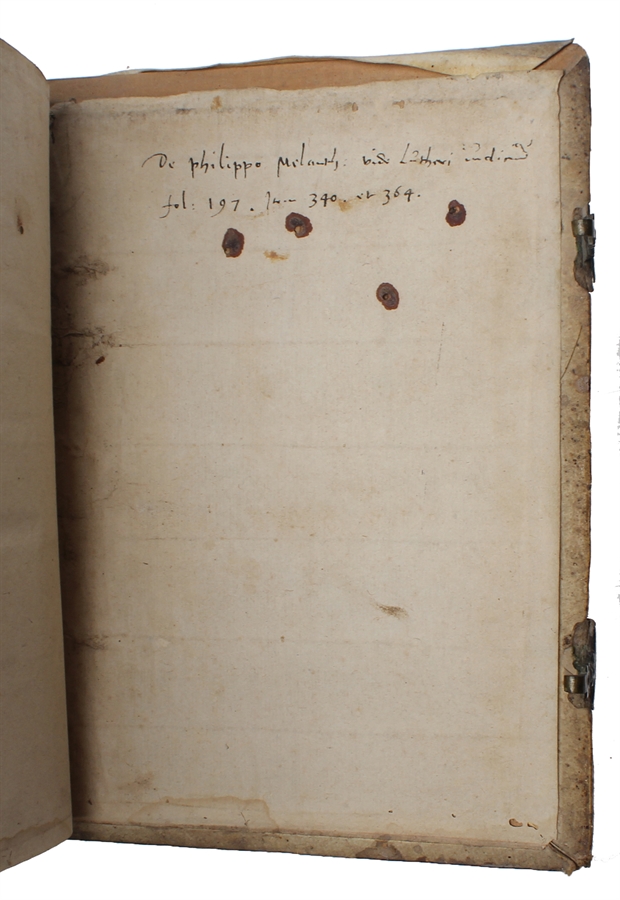 De philippo Melanth: vide Lutheri iudiciū
fol: 197. Item 340. et 364.